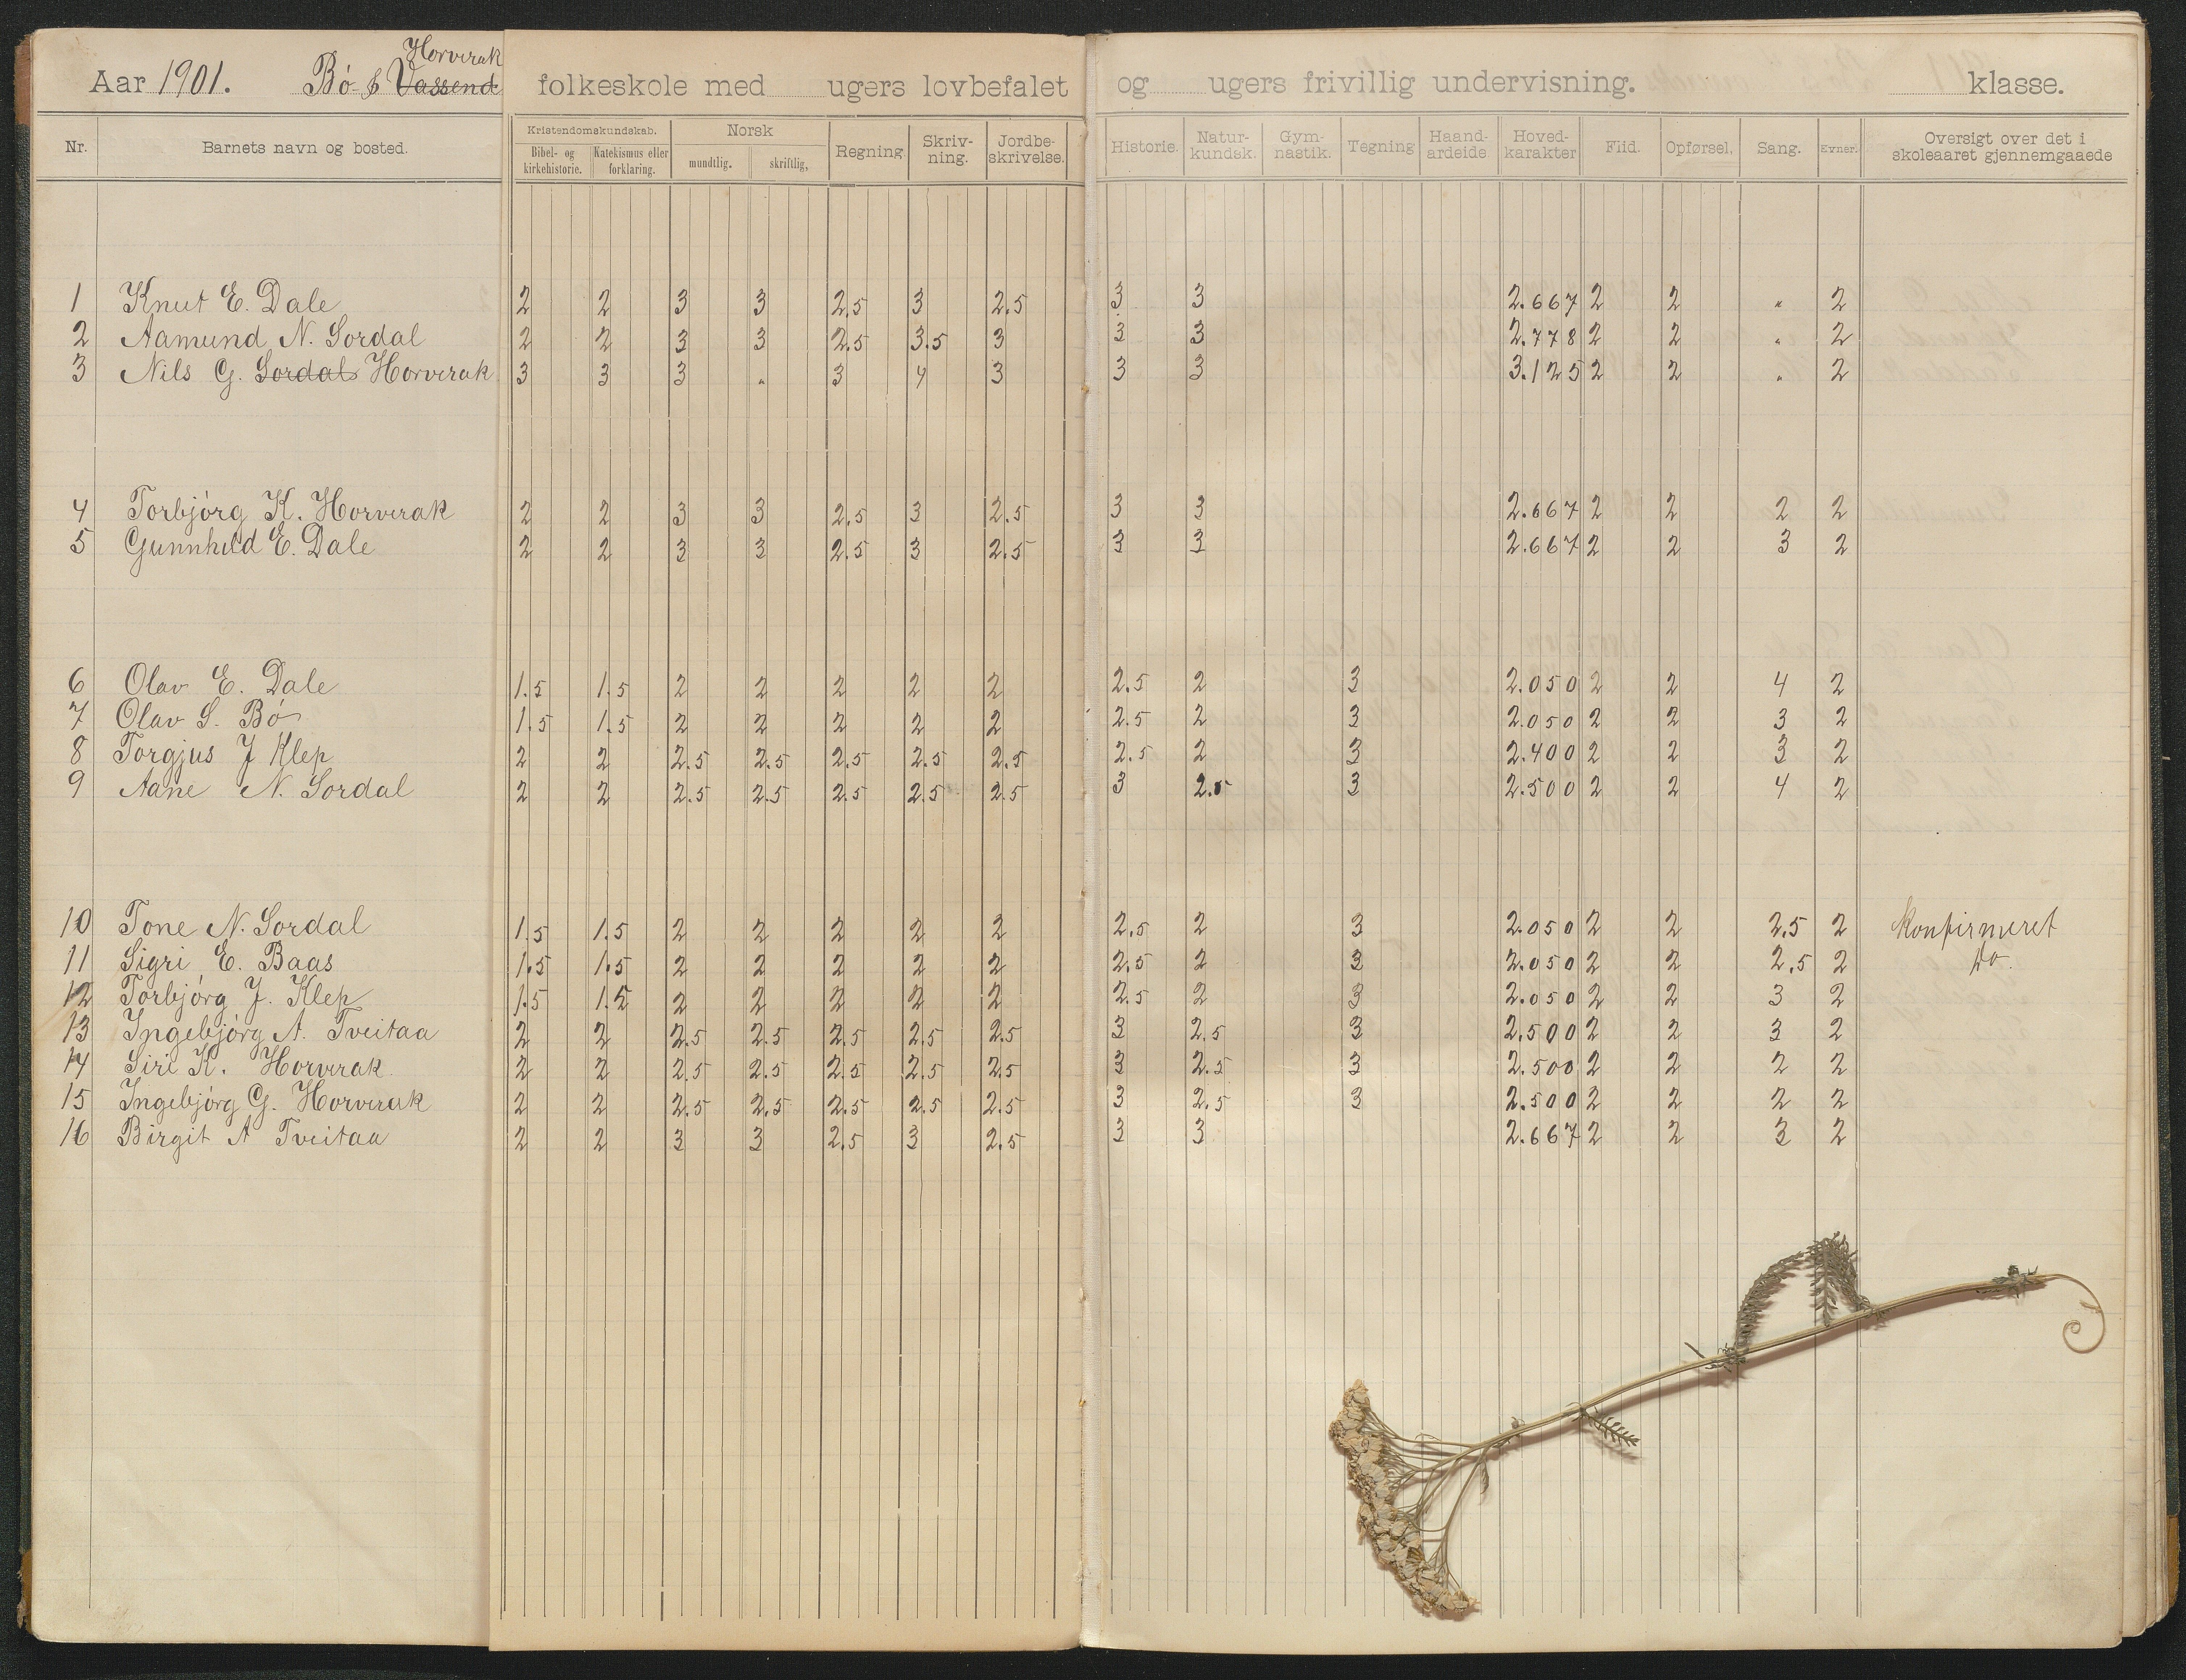 Horverak
Aar 1901. Bó & Vassend folkeskole med ugers lovbefalet og ugers frivillig undervisning. klasse.
Nr. Barnets navn og bosted. Kristendomskundskab. Bibel- og kirkehistorie. Katekismus eller forklaring. Norsk mundtlig. skriftlig. Regning. Skriv-ning. Jordbe-skrivelse. Historie. Natur-kundsk. Gym-nastik. Tegning Haand-arbeide. Hoved-karakter Flid. Opførsel. Sang. Evner. Oversigt over det i skoleaaret gjennemgaaede
1 Knut E. Dale 2 2 3 3 2.5 3 2.5 3 3 2.667 2 2 " 2
2 Aamund N. Sordal 2 2 3 3 2.5 3.5 3 3 3 2.778 2 2 " 2
3 Nils G. Sordal Horverak 3 3 3 " 3 4 3 3 3 3.125 2 2 " 2
4 Torbjórg K. Horverak 2 2 3 3 2.5 3 2.5 3 3 2.667 2 2 2 2
5 Gunnhild E. Dale 2 2 3 3 2.5 3 2.5 3 3 2.667 2 2 3 2
6 Olav E. Dale 1.5 1.5 2 2 2 2 2 2.5 2 3 2.050 2 2 4 2
7 Olav S. Bó 1.5 1.5 2 2 2 2 2 2.5 2 3 2.050 2 2 3 2
8 Torgjus J Klep 2 2 2.5 2.5 2.5 2.5 2.5 2.5 2 3 2.400 2 2 3 2
9 Aane N. Sordal 2 2 2.5 2.5 2.5 2.5 2.5 3 2.5 3 2.500 2 2 4 2
10 Tone N. Sordal 1.5 1.5 2 2 2 2 2 2.5 2 3 2.050 2 2 2.5 2 Konfirmeret
11 Sigri E. Baas 1.5 1.5 2 2 2 2 2 2.5 2 3 2.050 2 2 2.5 2 do.
12 Torbjórg J. Klep 1.5 1.5 2 2 2 2 2 2.5 2 3 2.050 2 2 3 2
13 Ingebjórg A. Tveitaa 2 2 2.5 2.5 2.5 2.5 2.5 3 2.5 3 2.500 2 2 3 2
14 Siri K. Horverak 2 2 2.5 2.5 2.5 2.5 2.5 3 2.5 3 2.500 2 2 2 2
15 Ingebjórg G. Horverak 2 2 2.5 2.5 2.5 2.5 2.5 3 2.5 3 2.500 2 2 2 2
16 Birgit A Tveitaa 2 2 3 3 2.5 3 2.5 3 3 2.667 2 2 3 2